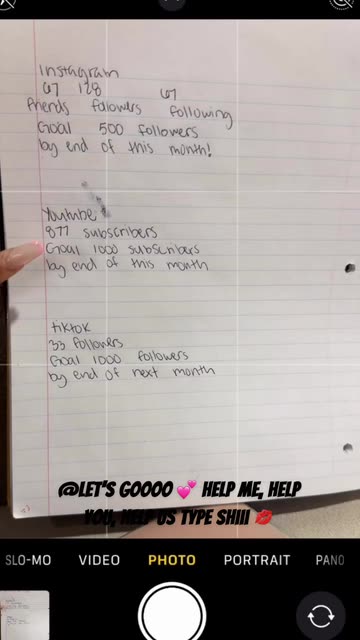 Instagram
67 128 67
friends followers following
Goal 500 followers
by end of this month!
Youtube
877 subscribers
Goal 1000 subscribers
by end of this month
tiktok
33 followers
Goal 1000 followers
by end of next month
@LET'S GOOOO 💕 HELP ME, HELP
YOU, HELP US TYPE SHIII 💋
SLO-MO VIDEO PHOTO PORTRAIT PANO